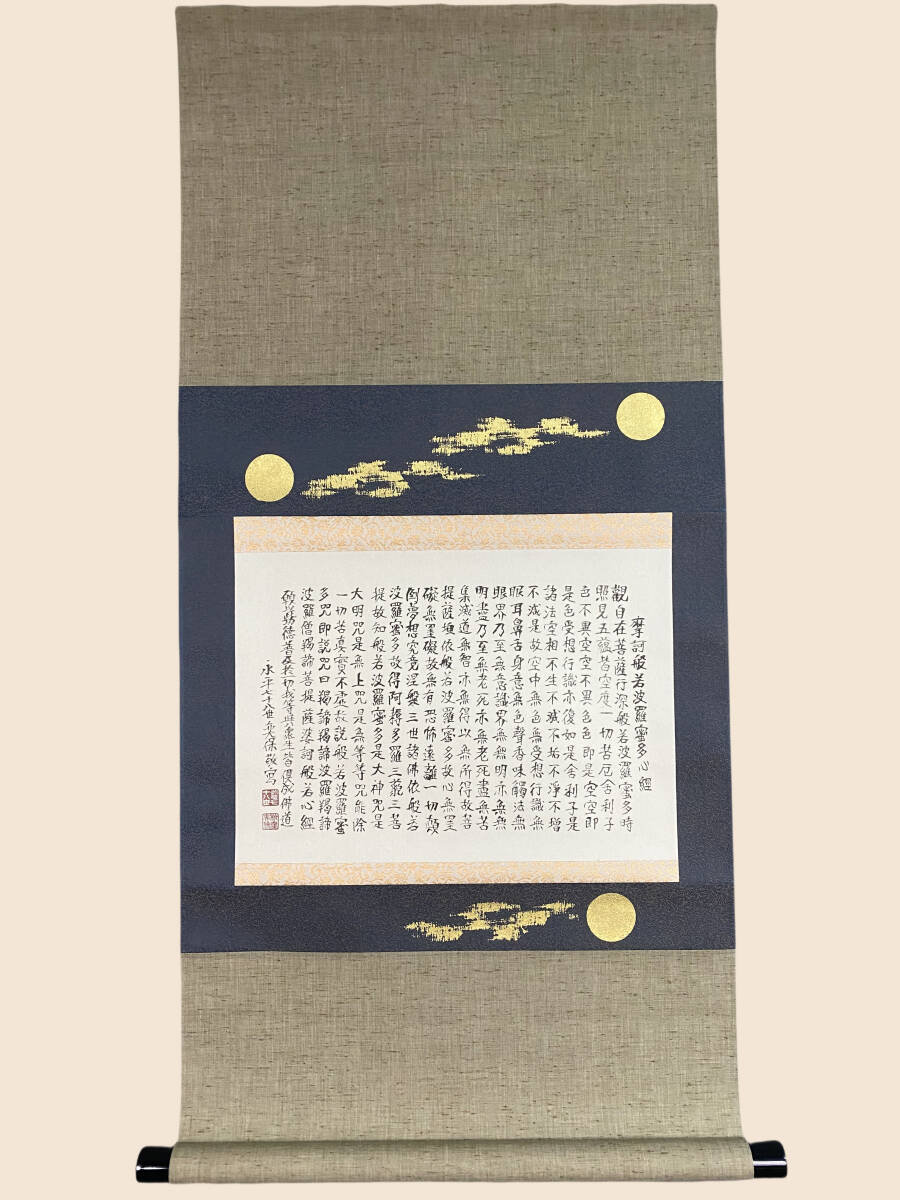 摩訶般若波羅蜜多心經
觀自在菩薩行深般若波羅蜜多時
照見五蘊皆空度一切苦厄舍利子
色不異空空不異色色即是空空即
是色受想行識亦復如是舍利子是
諸法空相不生不滅不垢不淨不增
不減是故空中無色無受想行識無
眼耳鼻舌身意無色聲香味觸法無
眼界乃至無意識界無無明亦無無
明盡乃至無老死亦無老死盡無苦
集滅道無智亦無得以無所得故菩
提薩埵依般若波羅蜜多故心無罣
礙無罣礙故無有恐怖遠離一切顛
倒夢想究竟涅槃三世諸佛依般若
波羅蜜多故得阿耨多羅三藐三菩
提故知般若波羅蜜多是大神咒是
大明咒是無上咒是無等等咒能除
一切苦真實不虛故說般若波羅蜜
多咒即說咒曰羯諦羯諦波羅羯諦
波羅僧羯諦菩提薩婆訶般若心經
功德普及於一切我等與衆生皆成佛道
永平七十八世奕保敬寫